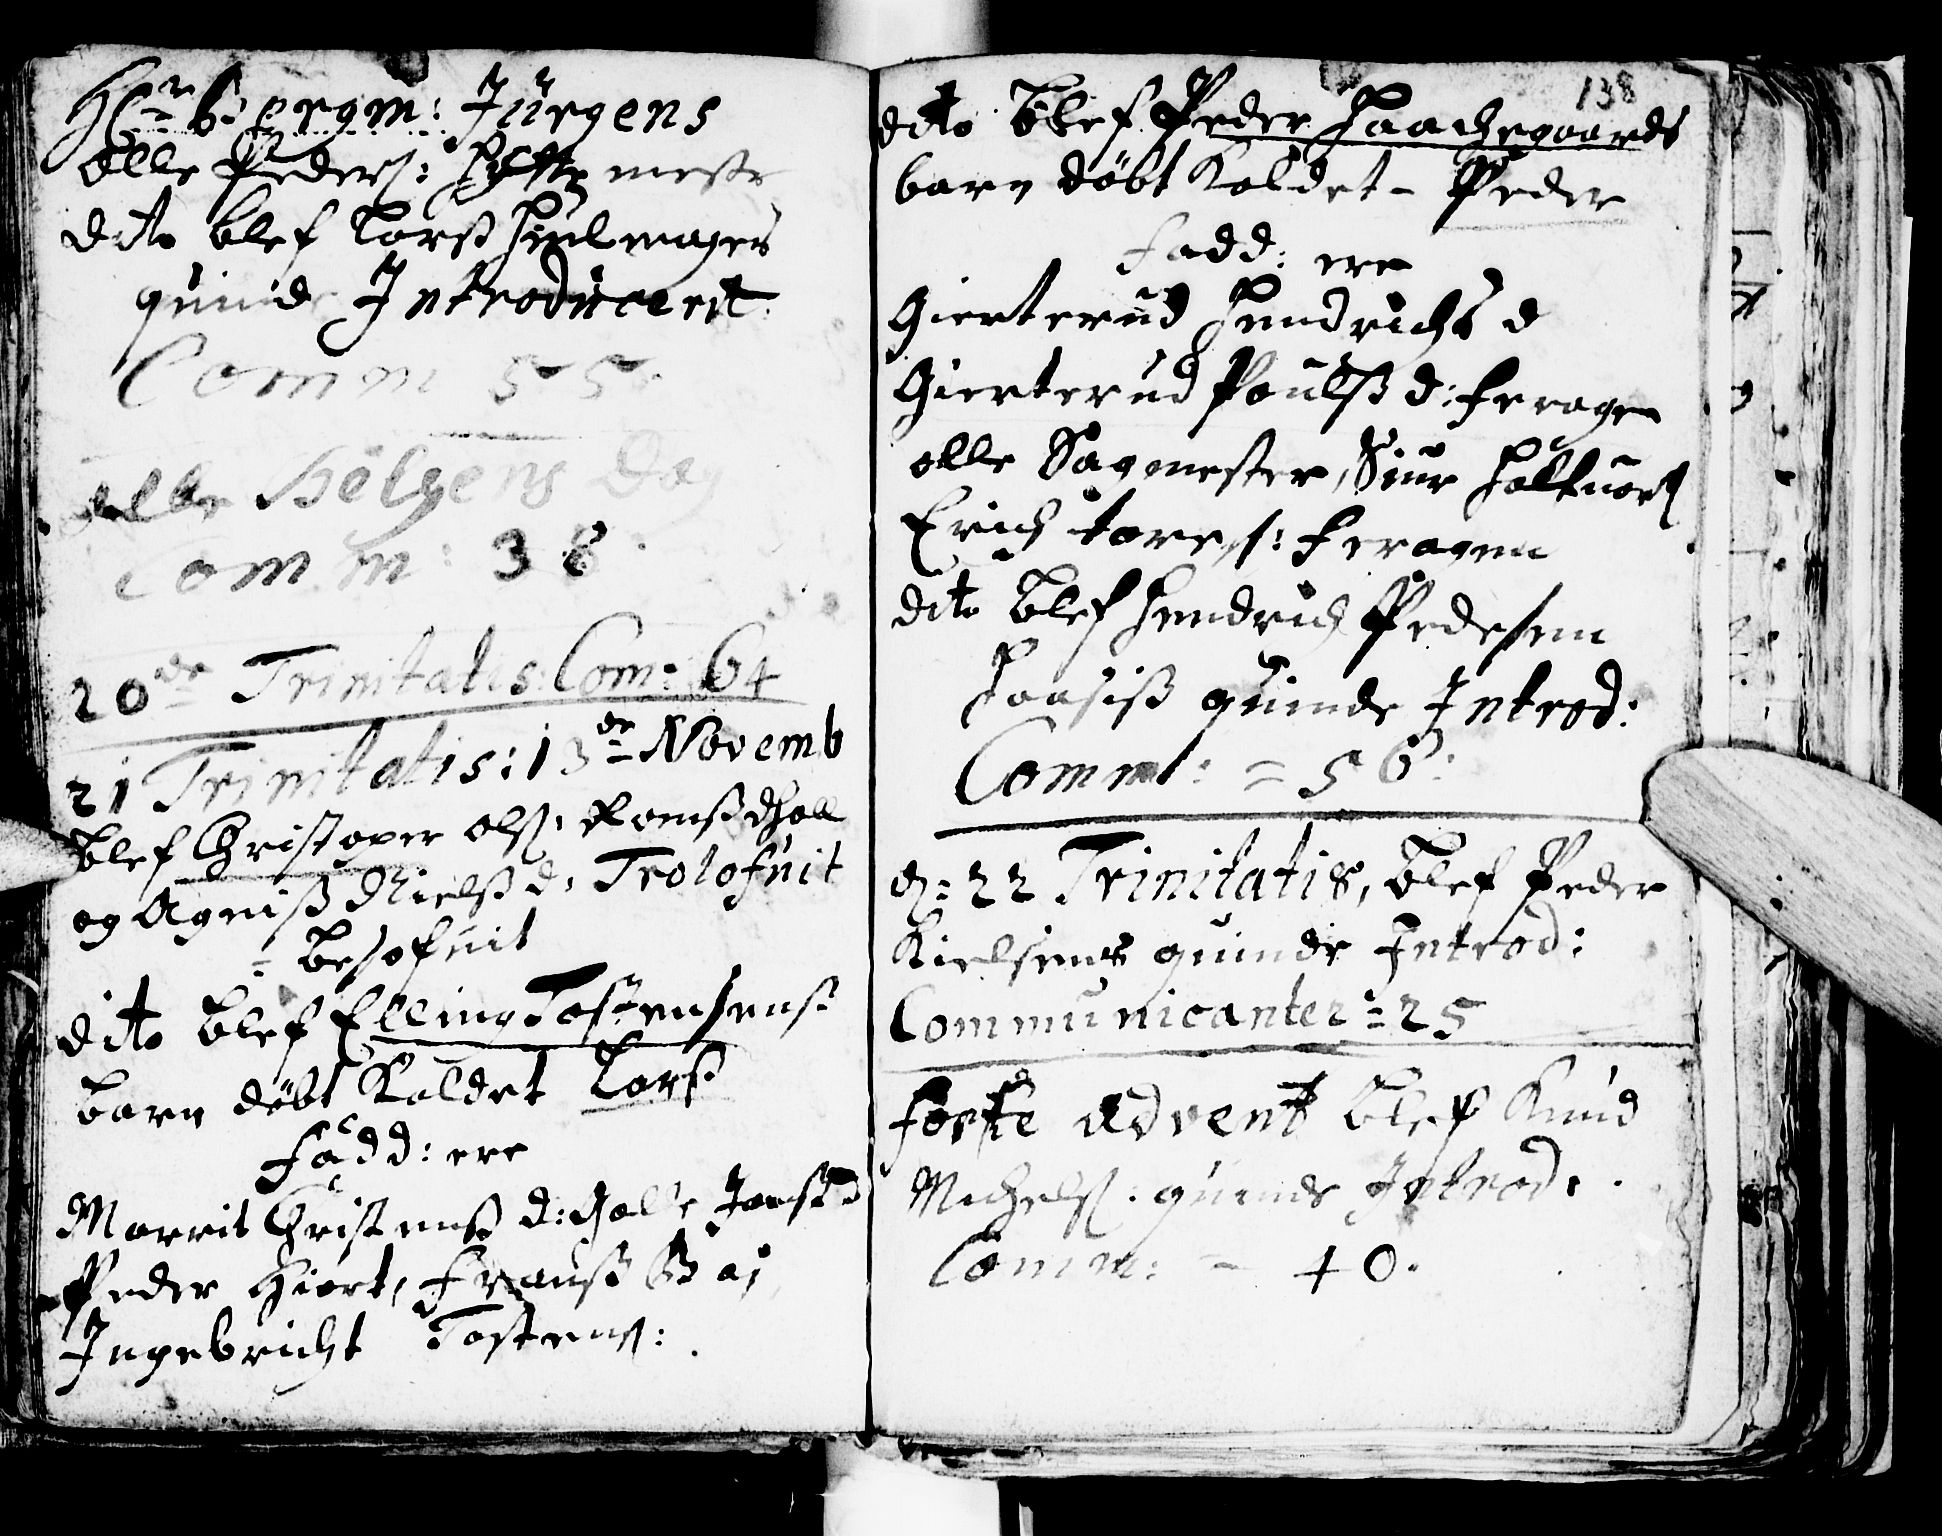 Hr: bergm: Jürgens
Olle Peders: Hÿtte mester
dito blef Larß Hiulmagers
quinde Introducerit
Comm 55.
Alle Helgens Dag
Comm: 38
20de Trinitatis: Com: 64
21 Trinitatis: 13de Novemb
blef Christoper Olß: Romßdhall
og Agniß Nielß d: Trolofuit
= besofuit
dito blef Elling Tostensens
barn döbt Kaldet Larß
Fadd: ere
Marrit Christenß d: Halle Jonß d
Peder Hiort, Franß Baj
Ingebricht Tostens:
138
dito blef Peder Haachegaards
barn döbt Kaldet - Peder
Fadd: ere
Gierterud Hendrichs d
Gierterud Poulß d: Feragen
olle Sagmester, Siur Holtuoll
Erich Tores: Feragen
dito blef Hendrich Pedersen
quinde Introd:
Comm: = 56:
D: 22 Trinitatis, blef Peder
Kielsens quinde Introd:
Communicanter = 25
Förste Advent blef Knud
Michels: quinde Introd:
Comm: - 40.